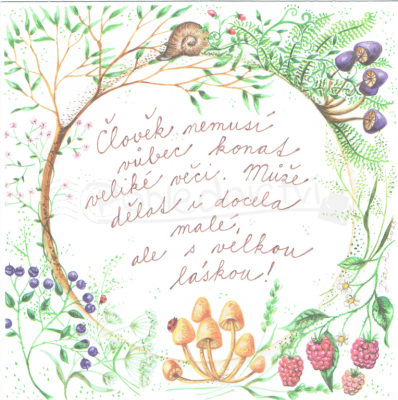 Člověk nemusí
vůbec konat
veliké věci. Může
dělat i docela
malé,
ale s velkou
láskou!